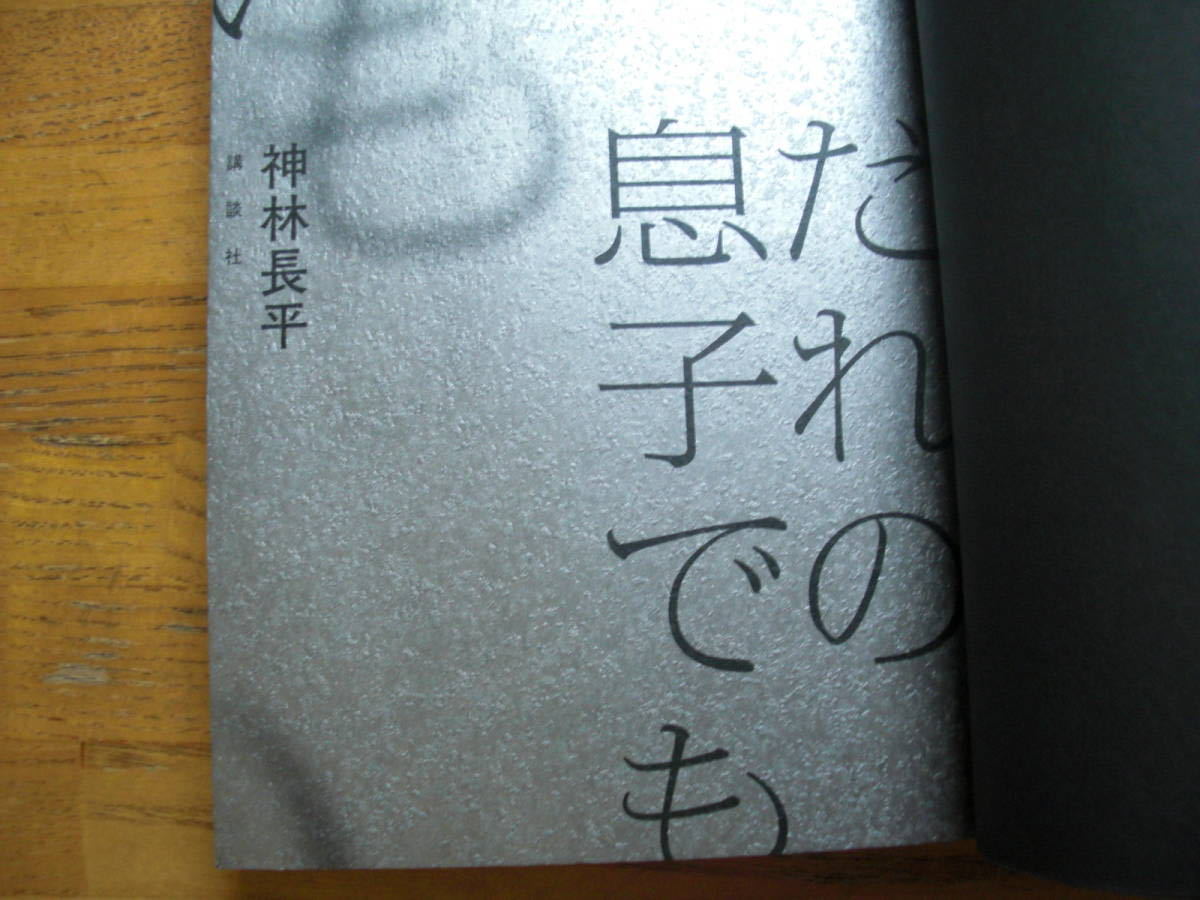 だれの
息子でも
神林長平
講談社